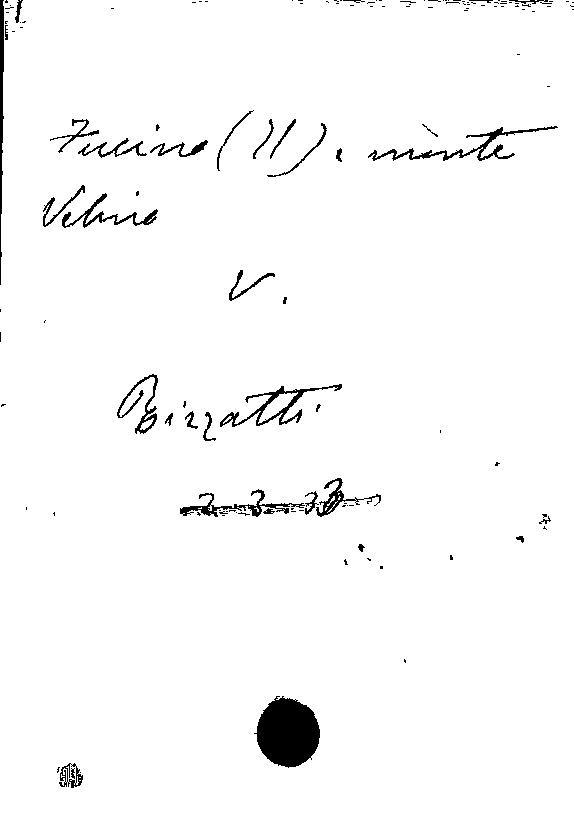 Fucino (Il). monte
Velino
V.
Bizzatti.
2.3.33